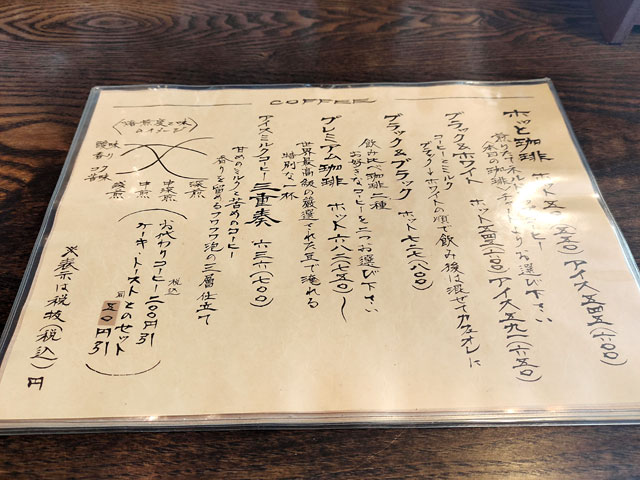 COFFEE
ホッと珈琲 ホット五〇〇(五五〇) アイス五四五(六〇〇)
香り高いネルドリップコーヒー
本日の珈琲 よりお選び下さい
ブラック&ホワイト ホット五四五(六〇〇) アイス五九一(六五〇)
コーヒーとミルク
ブラック→ホワイトの順で飲み後は混ぜてカフェオレに
ブラック&ブラック ホット七二七(八〇〇)
飲み比べ珈琲二種
お好きなコーヒーを二つお選び下さい
プレミアム珈琲 ホット六八二(七五〇)〜
世界最高級の厳選された豆で淹れる
特別な一杯
アイスミルクコーヒー 三重奏 六三六(七〇〇)
甘めのミルクと苦めのコーヒー
香りを留めるフワフワ泡の三層仕立て
(焙煎度と味のイメージ)
酸味
香り
コク
苦味
浅煎
中煎
中深煎
深煎
お代わりコーヒー 税込 二〇〇円引
ケーキ・トーストとのセット 同 五〇円引
※表示は税抜(税込)円